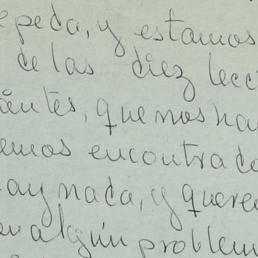 epeda, y estamos
de las diez lecc
antes, que nos ha
emos encontrado
ay nada, y quere
algún problem